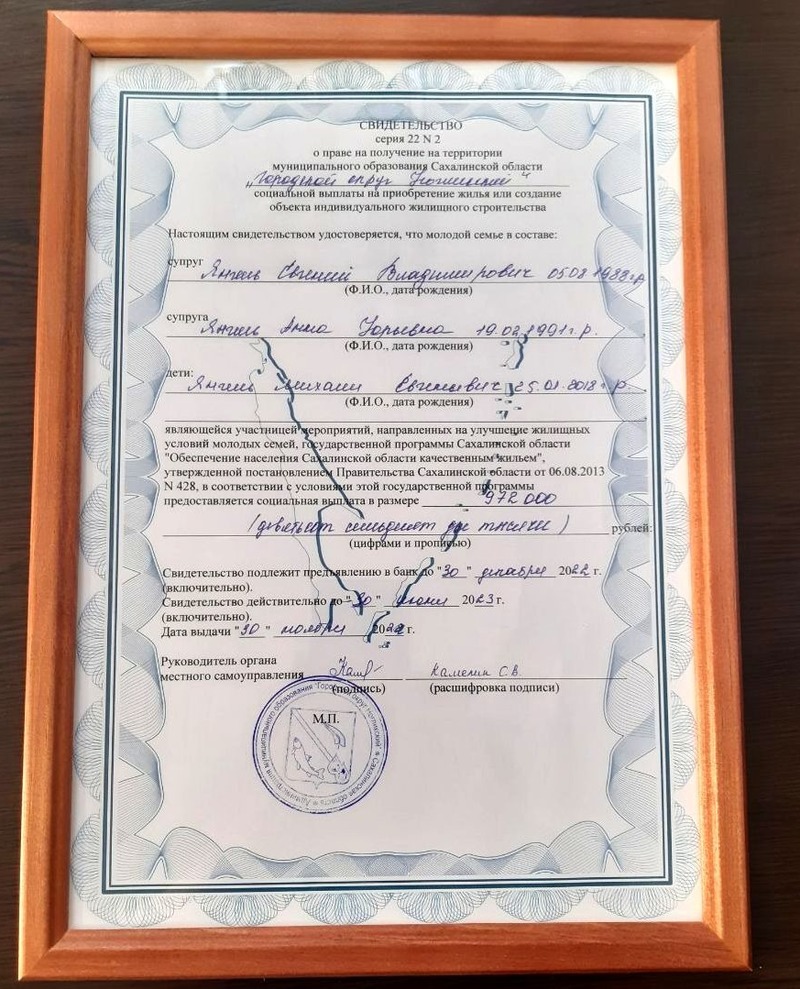 СВИДЕТЕЛЬСТВО
серия 22 N 2
о праве на получение на территории
муниципального образования Сахалинской области
"Городской округ Ногликский"
социальной выплаты на приобретение жилья или создание
объекта индивидуального жилищного строительства
Настоящим свидетельством удостоверяется, что молодой семье в составе:
супруг Янгель Евгений Владимирович 05.08.1988г.р
(Ф.И.О., дата рождения)
супруга Янгель Анна Юрьевна 19.02.1991г.р.
(Ф.И.О., дата рождения)
дети: Янгель Михаил Евгеньевич 25.01.2018г.р.
(Ф.И.О., дата рождения)
являющейся участницей мероприятий, направленных на улучшение жилищных
условий молодых семей, государственной программы Сахалинской области
"Обеспечение населения Сахалинской области качественным жильем",
утвержденной постановлением Правительства Сахалинской области от 06.08.2013
N 428, в соответствии с условиями этой государственной программы
предоставляется социальная выплата в размере 972 000
(девятьсот семьдесят две тысячи) рублей:
(цифрами и прописью)
Свидетельство подлежит предъявлению в банк до "30" декабря 2022 г.
(включительно).
Свидетельство действительно до "30" июня 2023 г.
(включительно).
Дата выдачи "30" ноября 2022 г.
Руководитель органа
местного самоуправления Каменин С.В.
(подпись) (расшифровка подписи)
М.П.
муниципального образования "Городской округ Ногликский" Сахалинской области